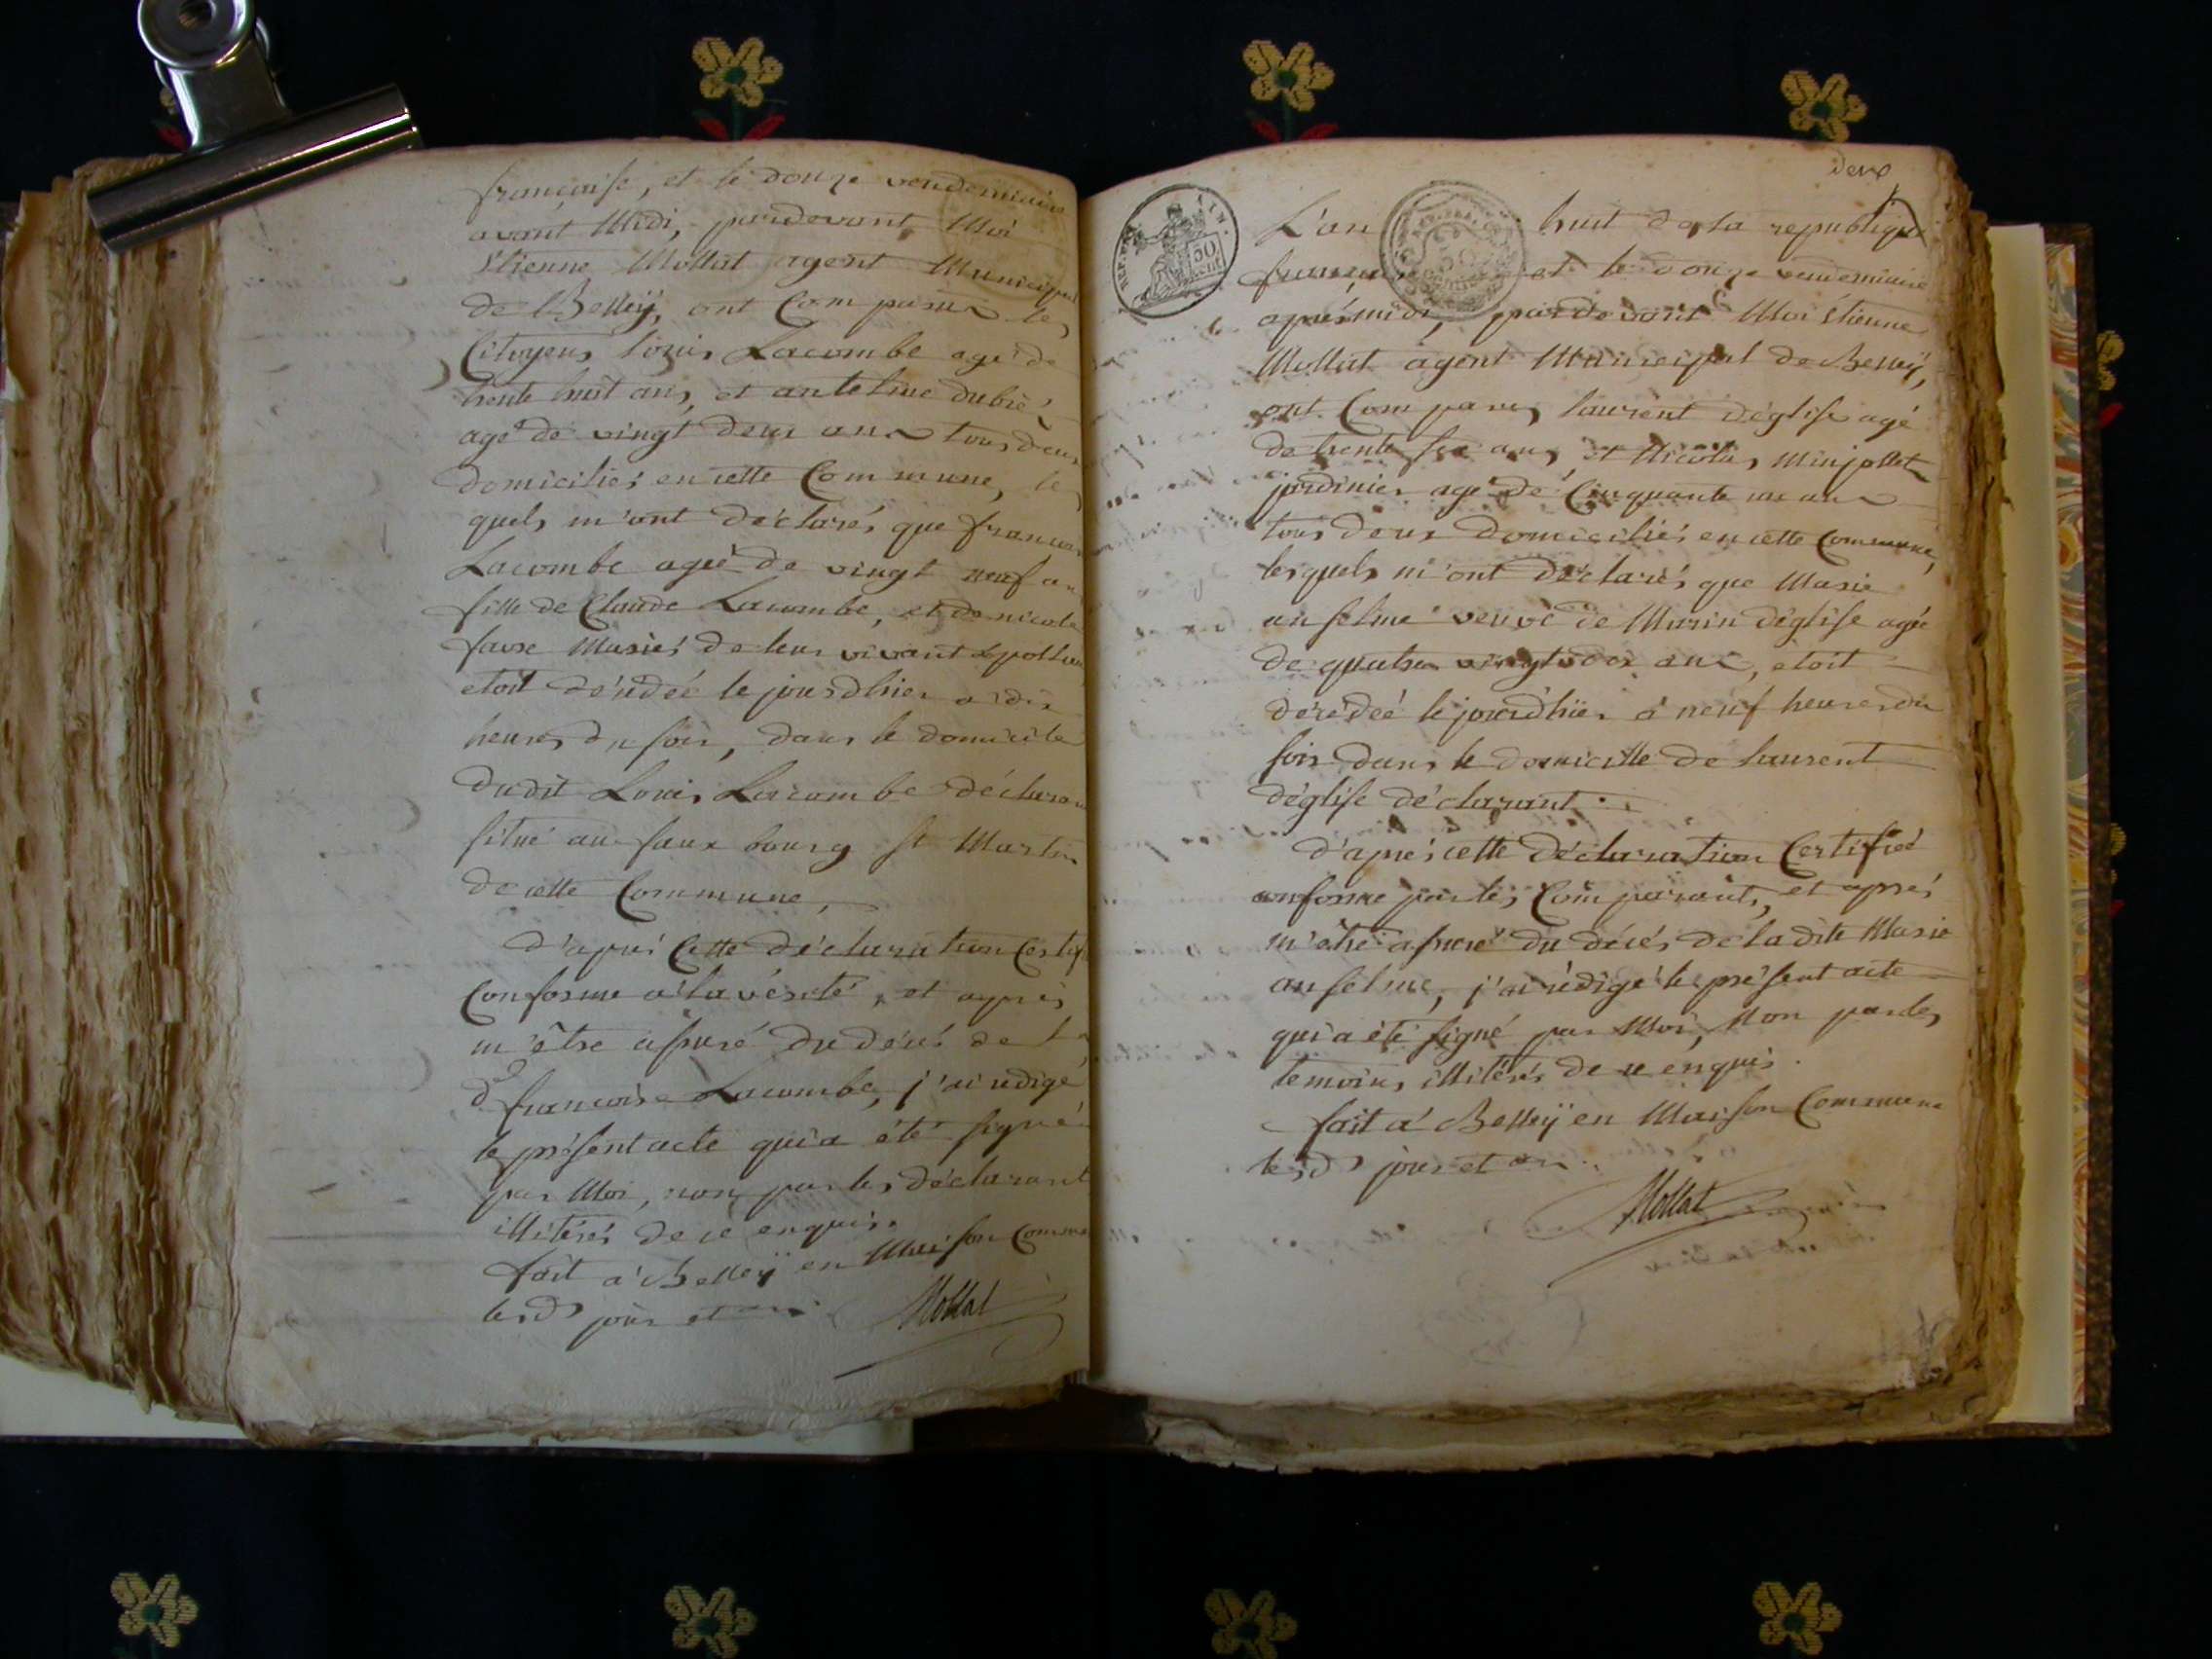 françoise, et le douze vendemiaire
avant Midi, pardevant Moi
Etienne Mollat agent Municipal
de Belleÿ, ont Comparus les
Citoyens louis Lacombe agé de
trente huit ans, et antelme dubié
agé de vingt deux ans tous deux
domiciliés en cette Commune, les
quels m'ont déclarés que
Lacombe agée de vingt neuf an
fille de Claude Lacombe, et de nicole
favre Mariés de leur vivant
etoit décédée le jourdhier a dix
heures du soir, dans le domicile
dudit Louis Lacombe déclarant
situé au faux bourg st Martin
de cette Commune,
d'après Cette déclaration Certif
Conforme a la vérité, et après
m'être assuré du décés de la
de francoise Lacombe, j'ai redigé
le présent acte qui a été signé
par Moi, non par les déclarant
illitérés de ce enquis.
fait a Belleÿ en Maison Commu
lesd jour et an.
Mollat
deux
REP. FRA.
50 cent
L'an huit de la republique
et le douze vendemiaire
après midi, pardevant Moi Etienne
Mollat agent Municipal de Belleÿ,
ont Comparus laurent déglise agé
de trente six ans et Nicolas Minjollet
jardinier agé de Cinquante un ans
tous deux domiciliés en cette Commune,
lesquels m'ont déclarés que Marie
anselme veuve de Marin déglise agée
de quatre vingt deux ans, etoit
décédeé le jourdhier á neuf heures du
soir dans le domicille de laurent
déglise déclarant.
d'après cette déclaration Certifieé
conforme par les Comparants, et après
m'être assuré du décés de la dite Marie
anselme, j'ai rédigé le présent acte
qui a été signé par Moi, Non par les
temoins illitérés de ce enquis.
fait a Belleÿ en Maison Commune
lesd jour et an.
Mollat